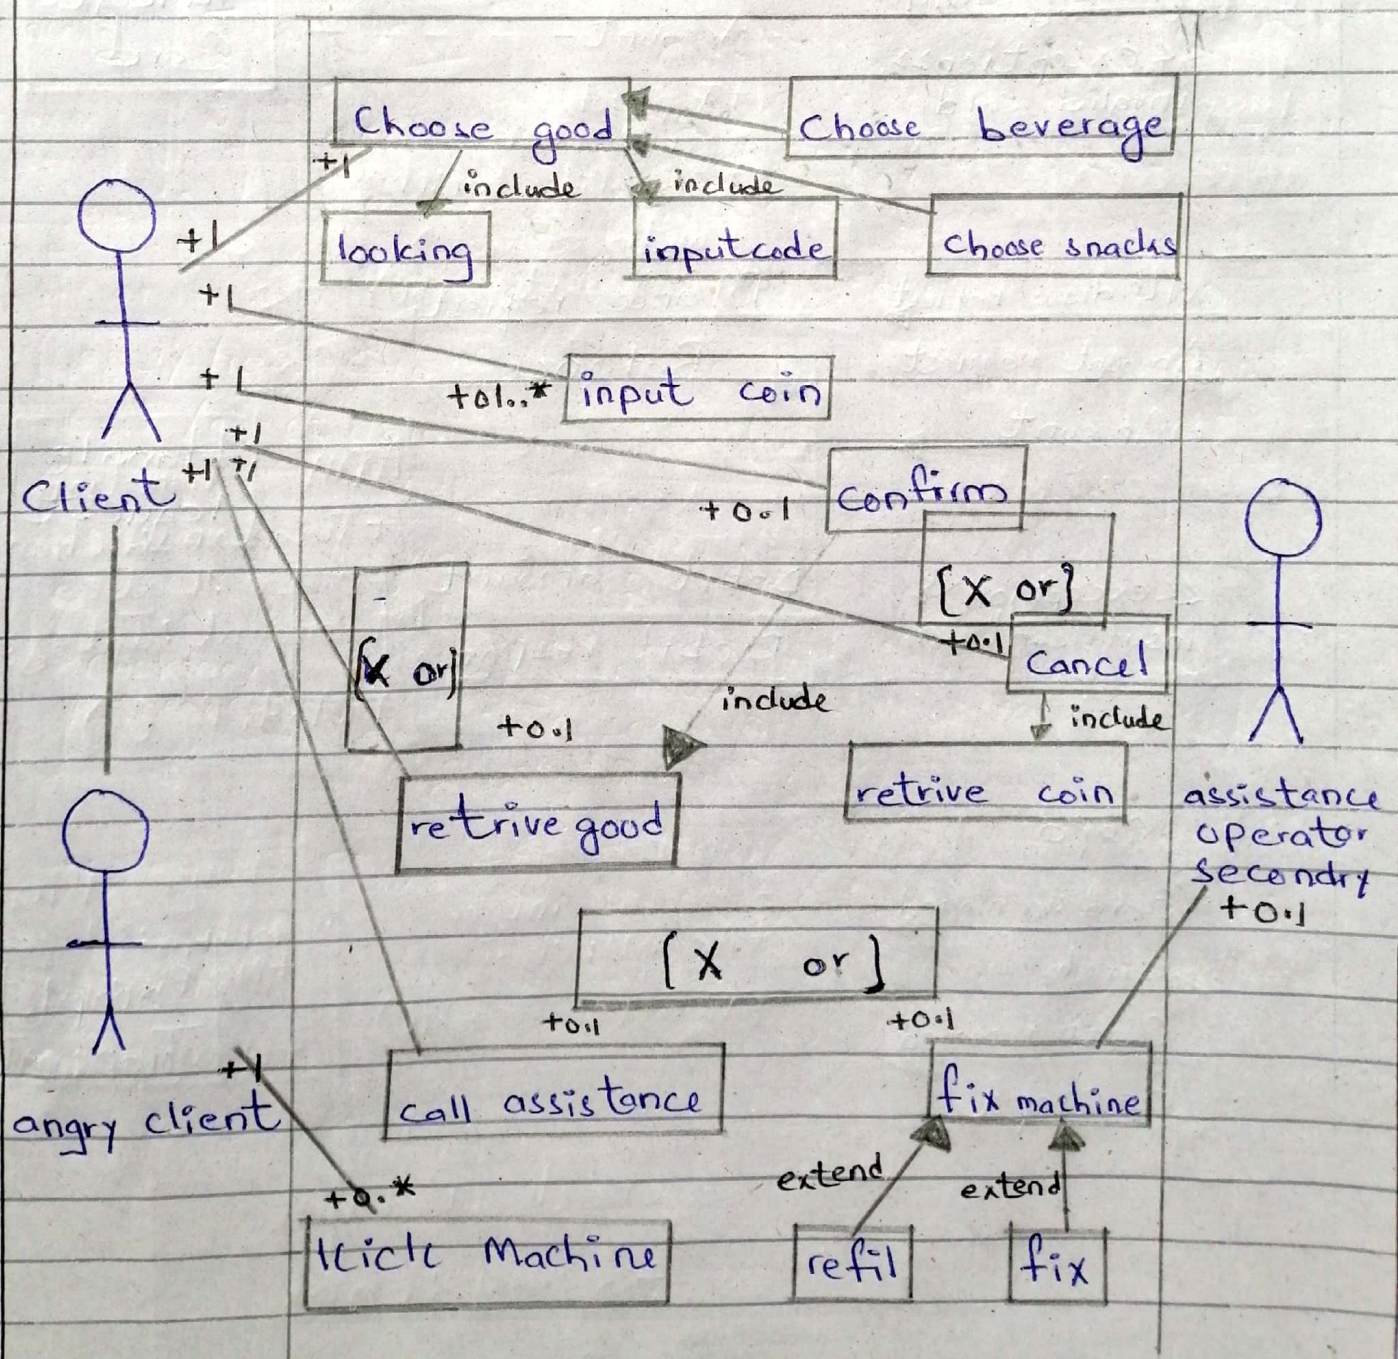 Choose good
Choose beverage
+1
include
include
+1
looking
inputcode
Choose snacks
+1
+1
+01..*
input coin
+1
+1
+1
Client
confirm
+0.1
[X or]
+0.1
cancel
[X or]
include
include
+0.1
retrive good
retrive coin
assistance
operator
secondry
+0.1
[X or]
+0.1
+0.1
+1
call assistance
fix machine
angry client
extend
extend
+0.*
Kick Machine
refil
fix